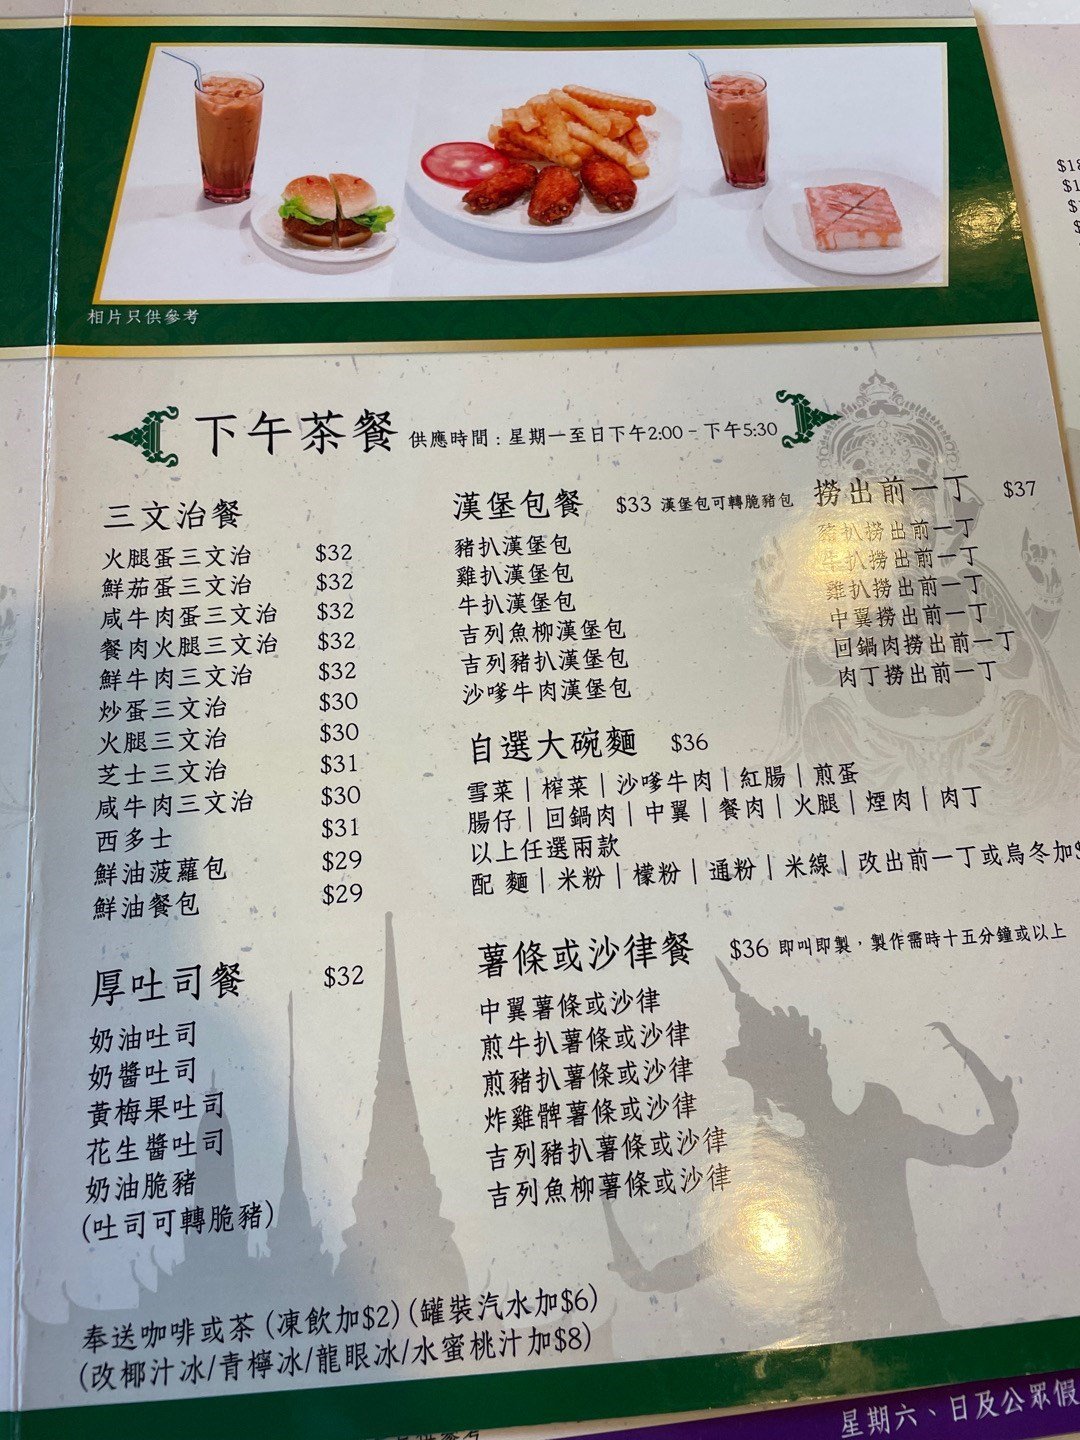 相片只供參考
下午茶餐 供應時間：星期一至日下午2:00 - 下午5:30
三文治餐
火腿蛋三文治 $32
鮮茄蛋三文治 $32
咸牛肉蛋三文治 $32
餐肉火腿三文治 $32
鮮牛肉三文治 $32
炒蛋三文治 $30
火腿三文治 $30
芝士三文治 $31
咸牛肉三文治 $30
西多士 $31
鮮油菠蘿包 $29
鮮油餐包 $29
厚吐司餐 $32
奶油吐司
奶醬吐司
黃梅果吐司
花生醬吐司
奶油脆豬
(吐司可轉脆豬)
漢堡包餐 $33 漢堡包可轉脆豬包
豬扒漢堡包
雞扒漢堡包
牛扒漢堡包
吉列魚柳漢堡包
吉列豬扒漢堡包
沙嗲牛肉漢堡包
撈出前一丁 $37
豬扒撈出前一丁
牛扒撈出前一丁
雞扒撈出前一丁
中翼撈出前一丁
回鍋肉撈出前一丁
肉丁撈出前一丁
自選大碗麵 $36
雪菜｜榨菜｜沙嗲牛肉｜紅腸｜煎蛋
腸仔｜回鍋肉｜中翼｜餐肉｜火腿｜煙肉｜肉丁
以上任選兩款
配 麵｜米粉｜檬粉｜通粉｜米線｜改出前一丁或烏冬加
薯條或沙律餐 $36 即叫即製，製作需時十五分鐘或以上
中翼薯條或沙律
煎牛扒薯條或沙律
煎豬扒薯條或沙律
炸雞髀薯條或沙律
吉列豬扒薯條或沙律
吉列魚柳薯條或沙律
奉送咖啡或茶 (凍飲加$2) (罐裝汽水加$6)
(改椰汁冰/青檸冰/龍眼冰/水蜜桃汁加$8)
星期六、日及公眾假